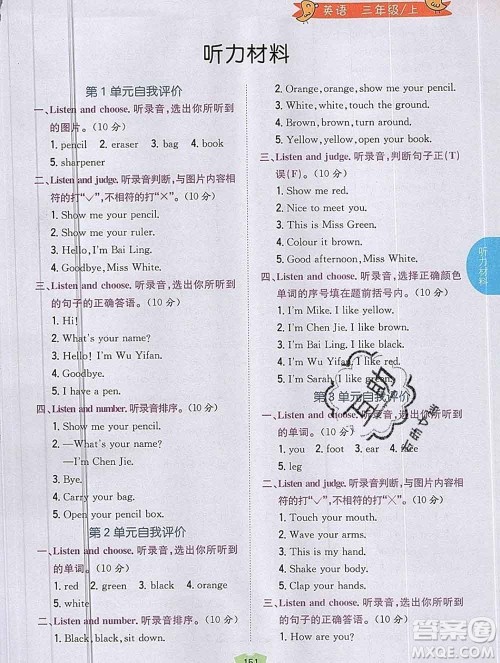 英语 三年级/上
听力材料
第1单元自我评价
一、Listen and choose. 听录音,选出你所听到
的图片。(10分)
1. pencil 2. eraser 3. bag 4. book
5. sharpener
二、Listen and judge. 听录音判断,与图片内容相
符的打“✓”,不相符的打“×”。(10分)
1. Show me your pencil.
2. Show me your ruler.
3. Hello, I'm Bai Ling.
4. Goodbye, Miss White.
三、Listen and choose. 听录音,选出你所听到
的句子的正确答语。(10分)
1. Hi!
2. What's your name?
3. Hello! I'm Wu Yifan.
4. Goodbye.
5. I have a pen.
四、Listen and number. 听录音排序。(10分)
1. Show me your pencil.
2. —What's your name?
—I'm Chen Jie.
3. Bye.
4. Carry your bag.
5. Open your book.
第2单元自我评价
一、Listen and choose. 听录音,选出你所听到
的单词。(10分)
1. red 2. green 3. black 4. orange
5. white
二、Listen and number. 听录音排序。(10分)
1. Black, black, sit down.
2. Orange, orange, show me your pencil.
3. White, white, touch the ground.
4. Brown, brown, turn around.
5. Yellow, yellow, open your book.
三、Listen and judge. 听录音,判断句子正(T)
误(F)。(10分)
1. Show me red.
2. Nice to meet you.
3. This is Miss Green.
4. Colour it brown.
5. Good afternoon, Miss White.
四、Listen and choose. 听录音,选择正确颜色
单词的序号填在题前括号内。(10分)
1. I'm Mike. I like yellow.
2. I'm Chen Jie. I like brown.
3. I'm Bai Ling. I like black.
4. I'm Wu Yifan. I like red.
5. I'm Sarah. I like green.
第3单元自我评价
一、Listen and choose. 听录音,选出你所听到
的单词。(10分)
1. you 2. foot 3. ear 4. nice
5. leg
二、Listen and judge. 听录音判断,与图片内容
相符的打“✓”,不相符的打“×”。(10分)
1. Touch your mouth.
2. Wave your arms.
3. This is my hand.
4. Shake your body.
5. Clap your hands.
三、Listen and choose. 听录音,选出你所听到
的句子。(10分)
1. Look at me.
听力材料
151
作业帮
答案圈
MXQE.COM